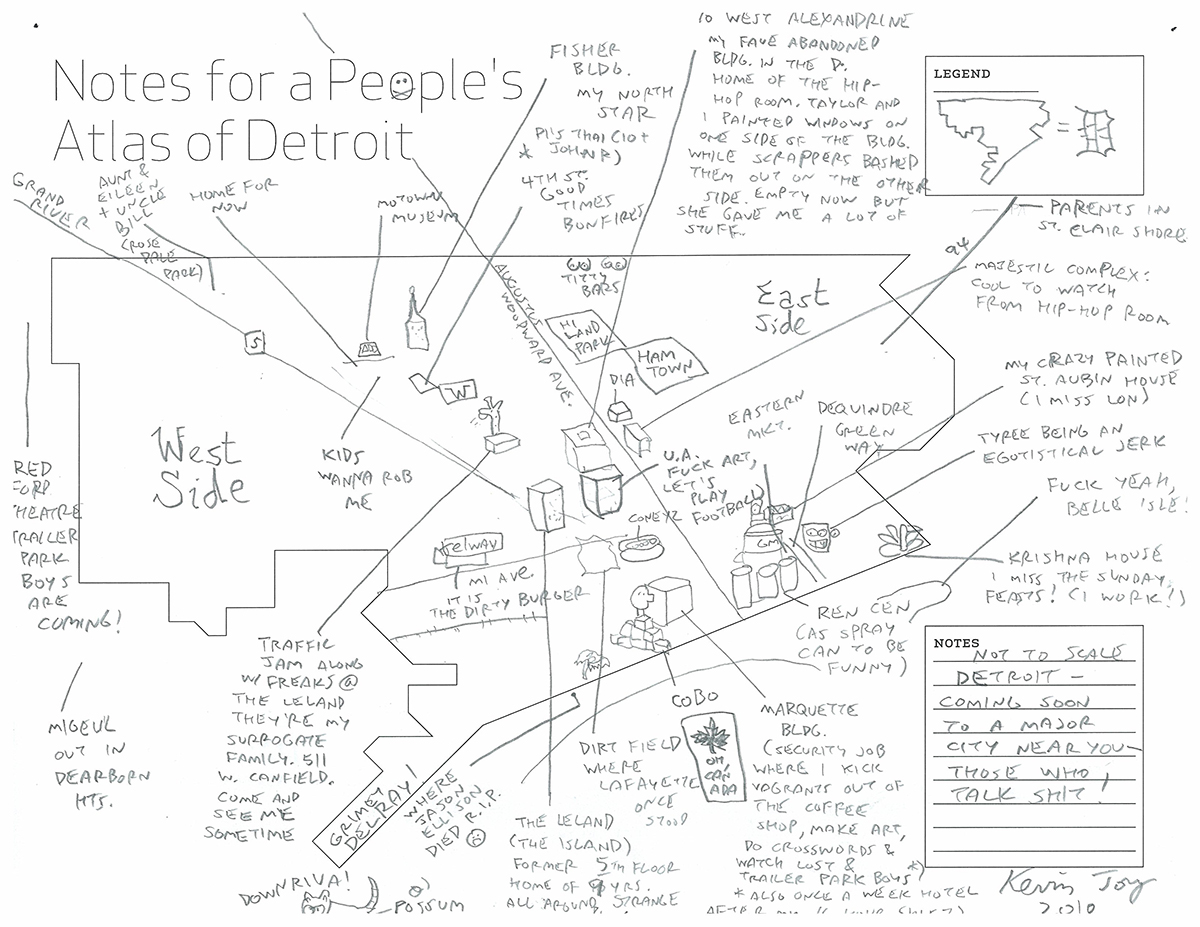 Notes for a People's
Atlas of Detroit
FISHER
BLDG.
MY NORTH
STAR
10 WEST ALEXANDRINE
MY FAVE ABANDONED
BLDG. IN THE D.
HOME OF THE HIP-
HOP ROOM. TAYLOR AND
I PAINTED WINDOWS ON
ONE SIDE OF THE BLDG.
WHILE SCRAPPERS BASHED
THEM OUT ON THE OTHER
SIDE. EMPTY NOW BUT
SHE GAVE ME A LOT OF
STUFF.
LEGEND
=
PI'S THAI
* JOHN R)
4TH ST.
GOOD
TIMES
BONFIRES
GRAND
RIVER
AUNT &
EILEEN
+ UNCLE
BILL
(ROSE
DALE
PARK)
HOME FOR
NOW
MOTOWN
MUSEUM
PARENTS IN
ST. CLAIR SHORE
94
MAJESTIC COMPLEX:
COOL TO WATCH
FROM HIP-HOP ROOM
TITTY
BARS
AUGUSTUS
WOODWARD AVE.
East
Side
HI
LAND
PARK
HAM
TOWN
5
W
DIA
MY CRAZY PAINTED
ST. AUBIN HOUSE
(I MISS LON)
EASTERN
MKT.
DEQUINDRE
GREEN
WAY
TYREE BEING AN
EGOTISTICAL JERK
West
Side
KIDS
WANNA ROB
ME
U.A.
FUCK ART,
LET'S
PLAY
FOOTBALL
FUCK YEAH,
BELLE ISLE!
RED
FORD
THEATRE
TRAILER
PARK
BOYS
ARE
COMING!
CONEYZ
GM
telway
MI AVE.
IT IS
THE DIRTY BURGER
KRISHNA HOUSE
I MISS THE SUNDAY
FEASTS! (I WORK!)
REN CEN
(AS SPRAY
CAN TO BE
FUNNY)
TRAFFIC
JAM ALONG
W/ FREAKS @
THE LELAND
THEY'RE MY
SURROGATE
FAMILY. 511
W. CANFIELD.
COME AND
SEE ME
SOMETIME
MIGEUL
OUT IN
DEARBORN
HTS.
COBO
OH,
CAN
ADA
DIRT FIELD
WHERE
LAFAYETTE
ONCE
STOOD
MARQUETTE
BLDG.
(SECURITY JOB
WHERE I KICK
VAGRANTS OUT OF
THE COFFEE
SHOP, MAKE ART,
DO CROSSWORDS &
WATCH LOST &
TRAILER PARK BOYS *)
* ALSO ONCE A WEEK HOTEL
NOTES
NOT TO SCALE
DETROIT —
COMING SOON
TO A MAJOR
CITY NEAR YOU —
THOSE WHO
TALK SHIT!
GRIMEY
DELRAY!
WHERE
JASON
ELLISON
DIED R.I.P.
THE LELAND
(THE ISLAND)
FORMER 5TH FLOOR
HOME OF 9 YRS.
ALL AROUND STRANGE
DOWNRIVA!
POSSUM
Kevin Joy
2010